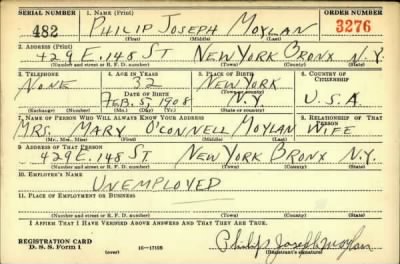 SERIAL NUMBER 1. NAME (Print) ORDER NUMBER
482 PHILIP JOSEPH MOYLAN 3276
(First) (Middle) (Last)
2. ADDRESS (Print)
429 E. 148 ST NEW YORK BRONX N.Y.
(Number and street or R. F. D. number) (Town) (County) (State)
3. TELEPHONE 4. AGE IN YEARS 5. PLACE OF BIRTH 6. COUNTRY OF CITIZENSHIP
NONE 32 NEW YORK
DATE OF BIRTH (Town or county)
FEB. 5, 1908 N.Y. U.S.A.
(Exchange) (Number) (Mo.) (Day) (Yr.) (State or country)
7. NAME OF PERSON WHO WILL ALWAYS KNOW YOUR ADDRESS 8. RELATIONSHIP OF THAT PERSON
MRS. MARY O'CONNELL MOYLAN WIFE
(Mr., Mrs., Miss) (First) (Middle) (Last)
9. ADDRESS OF THAT PERSON
429 E. 148 ST NEW YORK BRONX N.Y.
(Number and street or R. F. D. number) (Town) (County) (State)
10. EMPLOYER'S NAME
UNEMPLOYED
11. PLACE OF EMPLOYMENT OR BUSINESS
(Number and street or R. F. D. number) (Town) (County) (State)
I AFFIRM THAT I HAVE VERIFIED ABOVE ANSWERS AND THAT THEY ARE TRUE.
REGISTRATION CARD
D. S. S. Form 1 (over) 16-17105 Philip Joseph Moylan
(Registrant's signature)